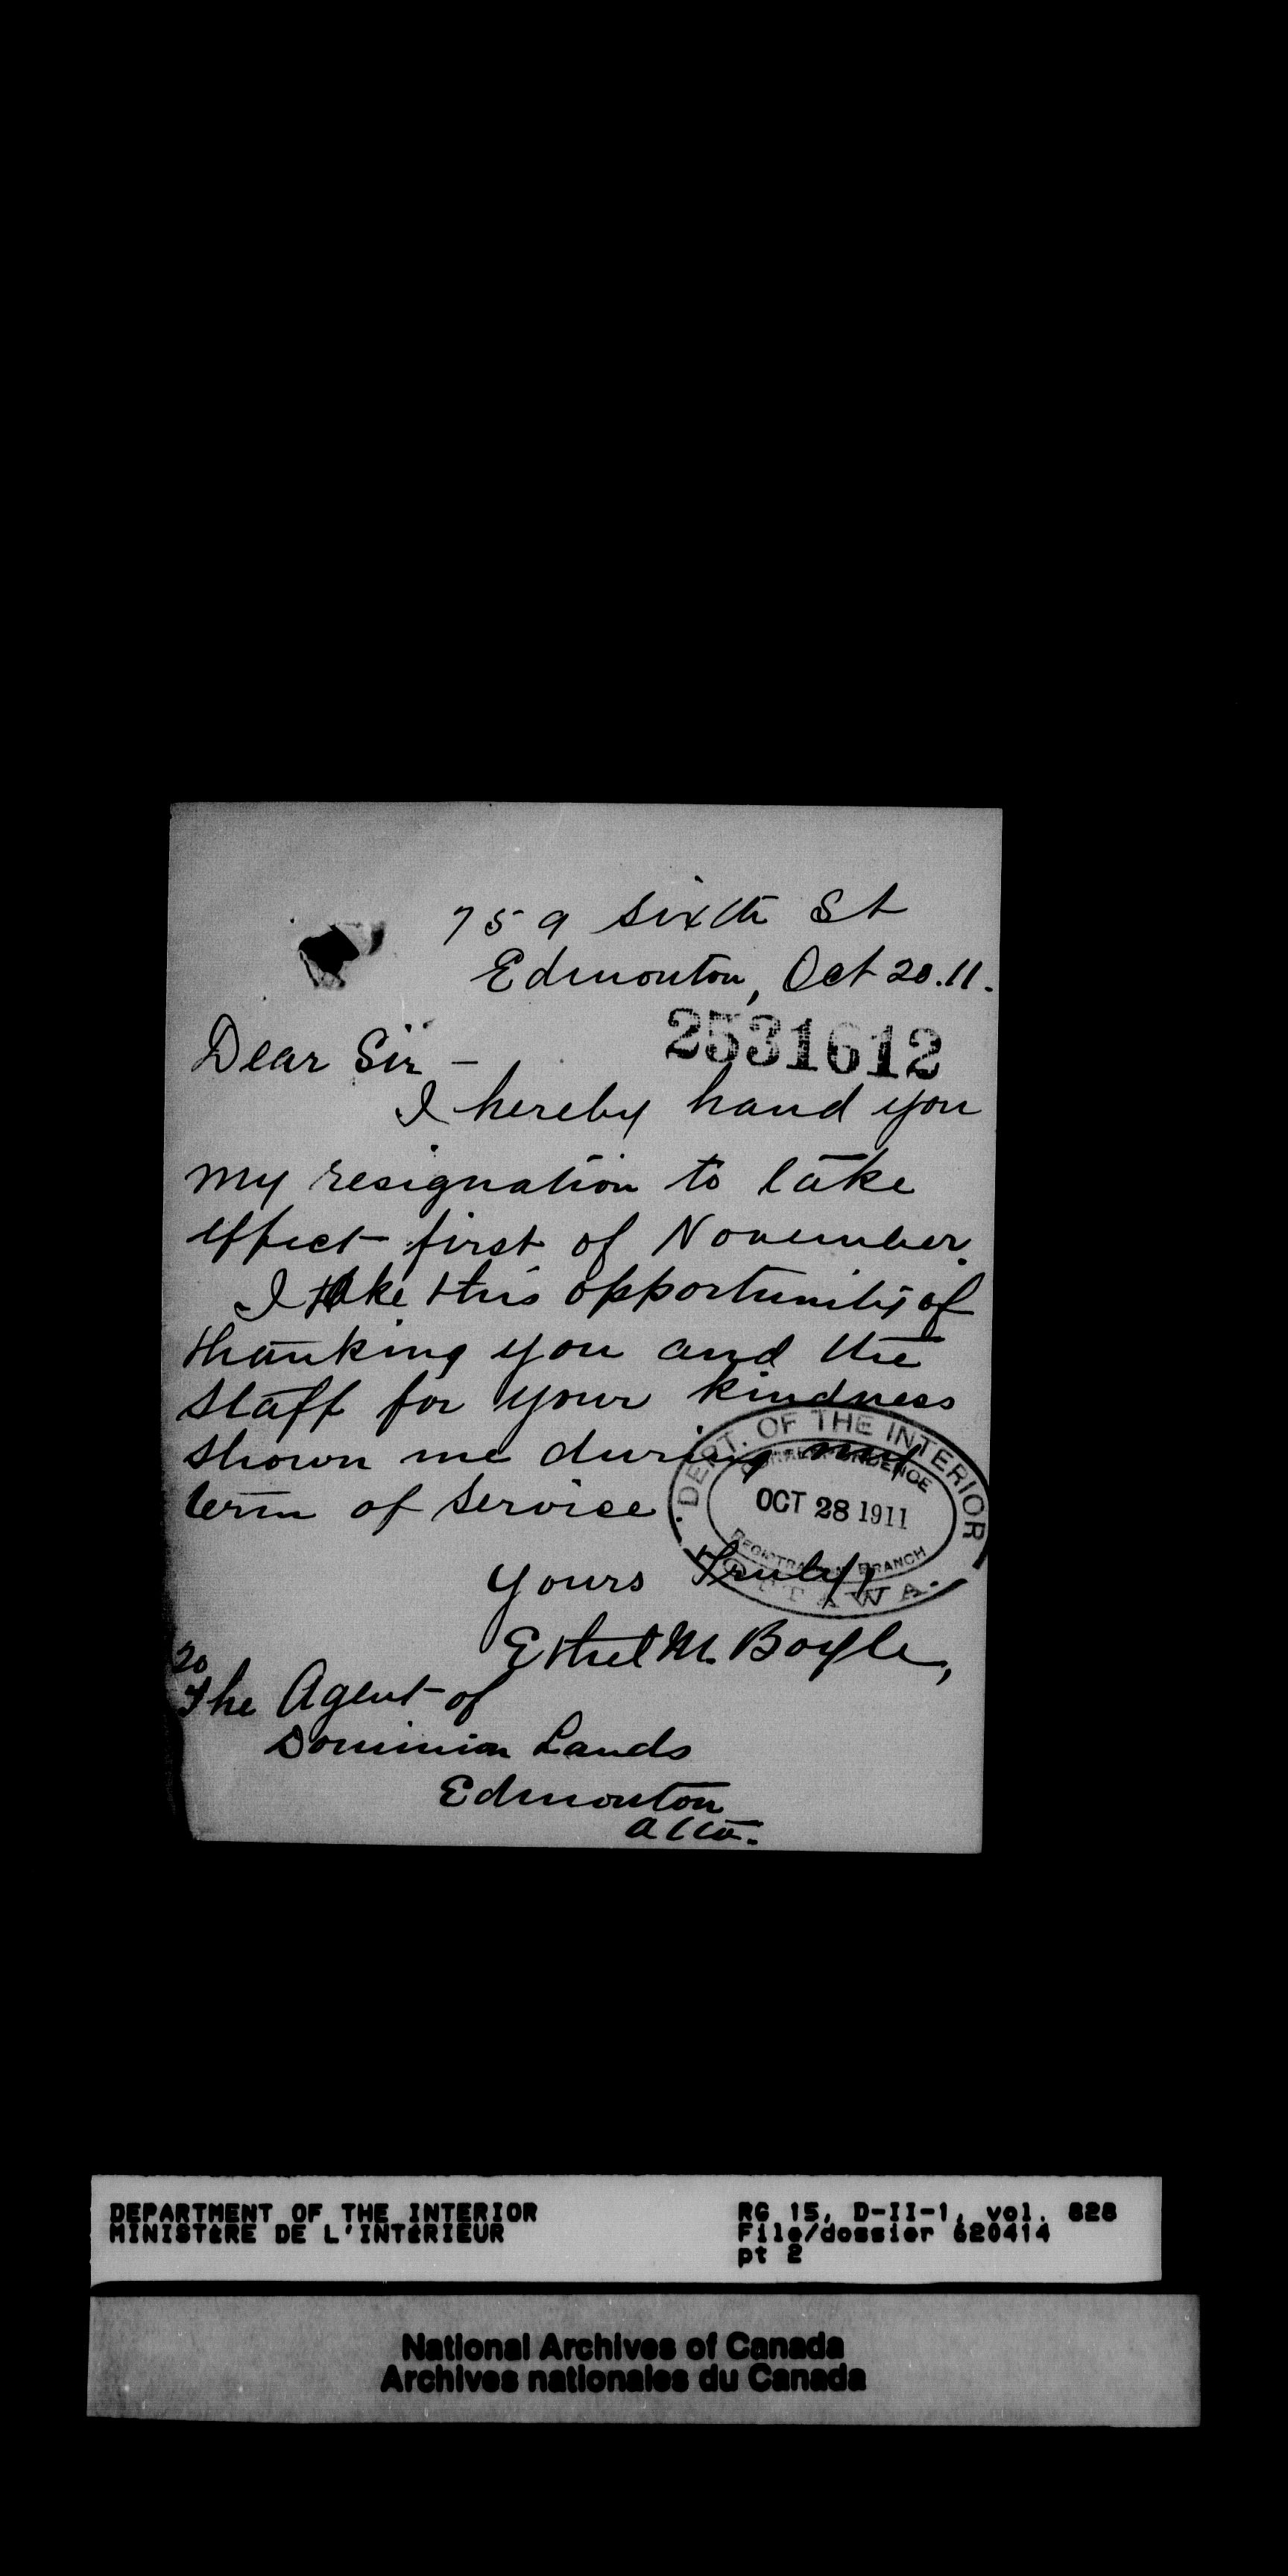 759 Sixth St
Edmonton, Oct 20.11.
2531612
Dear Sir –
I hereby hand you
my resignation to take
effect first of November.
I take this opportunity of
thanking you and the
staff for your kindness
shown me during my
term of service
DEPT. OF THE INTERIOR
CORRESPONDENCE
OCT 28 1911
REGISTRATION BRANCH
OTTAWA.
Yours Truly,
Ethel M. Boyle,
To
The Agent of
Dominion Lands
Edmonton
Alta.
DEPARTMENT OF THE INTERIOR
MINISTÈRE DE L'INTÉRIEUR
RG 15, D-II-1, vol. 828
File/dossier 620414
pt 2
National Archives of Canada
Archives nationales du Canada